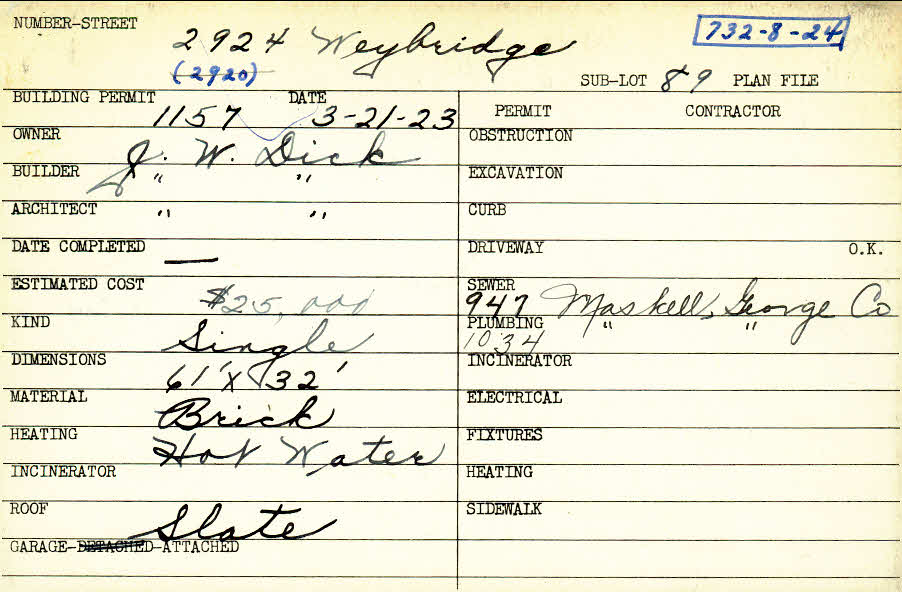 NUMBER-STREET 2924 Weybridge 732-8-24
(2920) SUB-LOT 89 PLAN FILE
BUILDING PERMIT 1157 DATE 3-21-23
OWNER J. W. Dick
BUILDER " "
ARCHITECT " "
DATE COMPLETED —
ESTIMATED COST $25,000
KIND Single
DIMENSIONS 61' X 32'
MATERIAL Brick
HEATING Hot Water
INCINERATOR
ROOF Slate
GARAGE-DETACHED-ATTACHED
PERMIT CONTRACTOR
OBSTRUCTION
EXCAVATION
CURB
DRIVEWAY O.K.
SEWER 947 Maskell, George Co
PLUMBING 1034 " "
INCINERATOR
ELECTRICAL
FIXTURES
HEATING
SIDEWALK